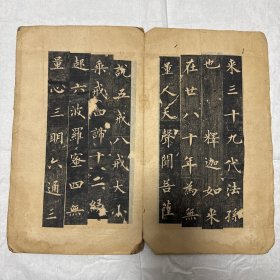 來三十九代法孫
也釋迦如來
在世八十年為無
量人天聲聞菩薩
說五戒八戒大小
乘戒四諦十二緣
起六波羅蜜四無
量心三明六通三